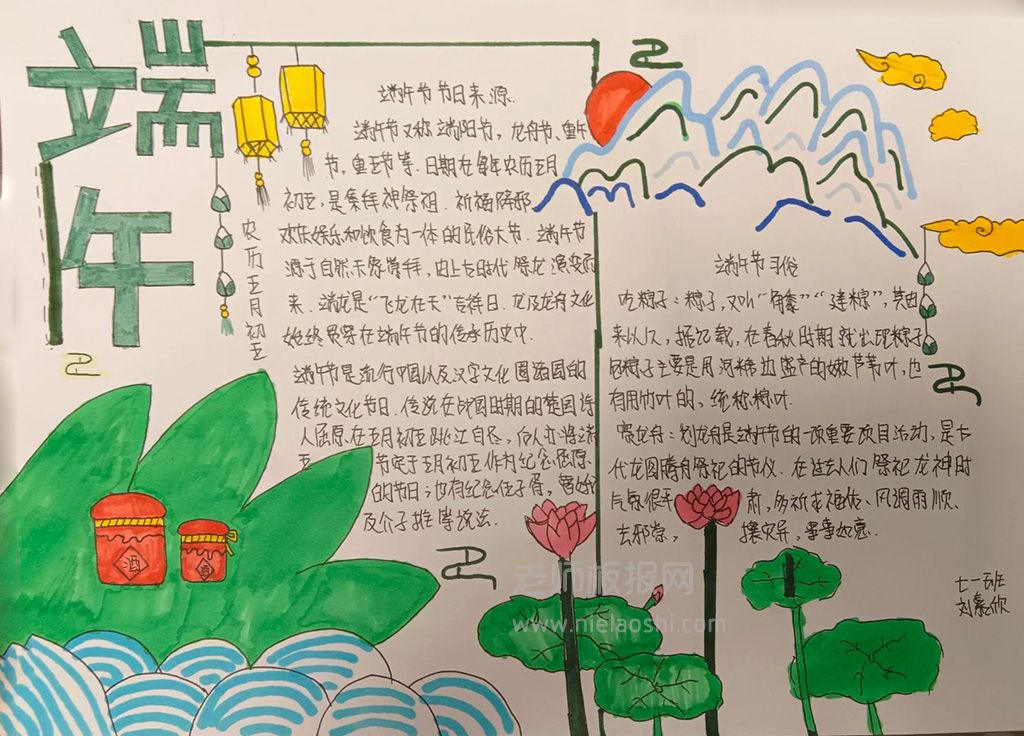 端午
农历五月初五
端午节节日来源
端午节又称端阳节，龙舟节、重午
节，重五节等。日期在每年农历五月
初五，是集拜神祭祖、祈福辟邪
欢庆娱乐和饮食为一体的民俗大节。端午节
源于自然天象崇拜，由上古时代祭龙演变而
来。端龙是“飞龙在天”吉祥日、龙及龙舟文化
始终贯穿在端午节的传承历史中.
端午节是流行中国以及汉字文化圈诸国的
传统文化节日、传说在战国时期的楚国诗
人屈原在五月初五跳江自尽，后人亦将
五 节定于五月初五作为纪念屈原
的节日；也有纪念伍子胥，曹娥
及介子推等说法.
端午节习俗
吃粽子：粽子，又叫“角黍”“ ”，其由
来以久，据记载，在春秋时期就出现粽子
包粽子主要是用河塘边盛产的嫩芦苇叶，也
有用竹叶的，统称粽叶.
赛龙舟：划龙舟是端午节的一项重要项目活动，是古
代龙图腾祭祀的节仪. 在过去人们祭祀龙神时
气氛很 肃，多祈求福佑、风调雨顺、
去邪祟， 攘灾异，事事如意.
七一班
刘 欣
酒
酒
老师板报网
www.nielaoshi.com